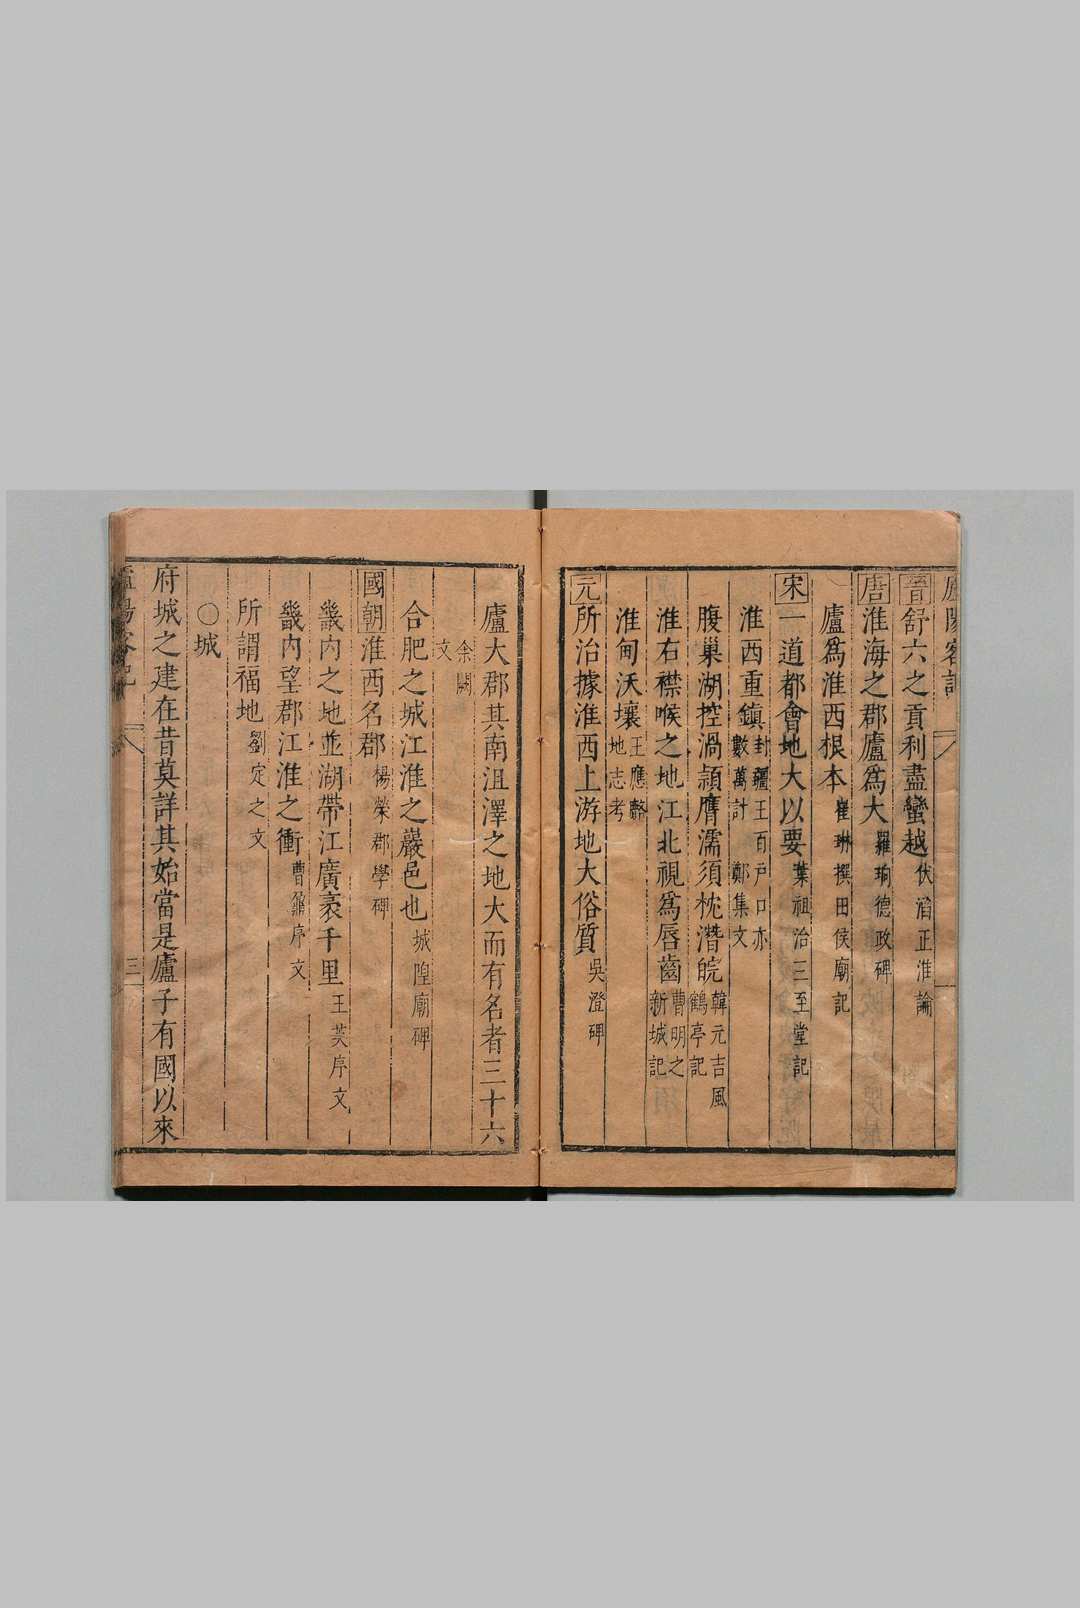 廬陽客記
晉舒六之貢利盡蠻越伏滔正淮論
唐淮海之郡廬爲大羅珦德政碑
廬爲淮西根本崔琳撰田侯廟記
宋一道都會地大以要葉祖洽三至堂記
淮西重鎮封疆王百戶口亦數萬計鄭集文
腹巢湖控渦潁膺濡須枕潛皖韓元吉風鶴亭記
淮右襟喉之地江北視爲唇齒曹明之新城記
淮甸沃壤王應麟地志考
元所治據淮西上游地大俗質吳澄碑
廬大郡其南沮澤之地大而有名者三十六
余闕文
合肥之城江淮之巖邑也城隍廟碑
國朝淮西名郡楊榮郡學碑
畿內之地並湖帶江廣袤千里王英序文
畿內望郡江淮之衝曹鼐序文
所謂福地劉定之文
〇城
府城之建在昔莫詳其始當是廬子有國以來
廬陽客記
三